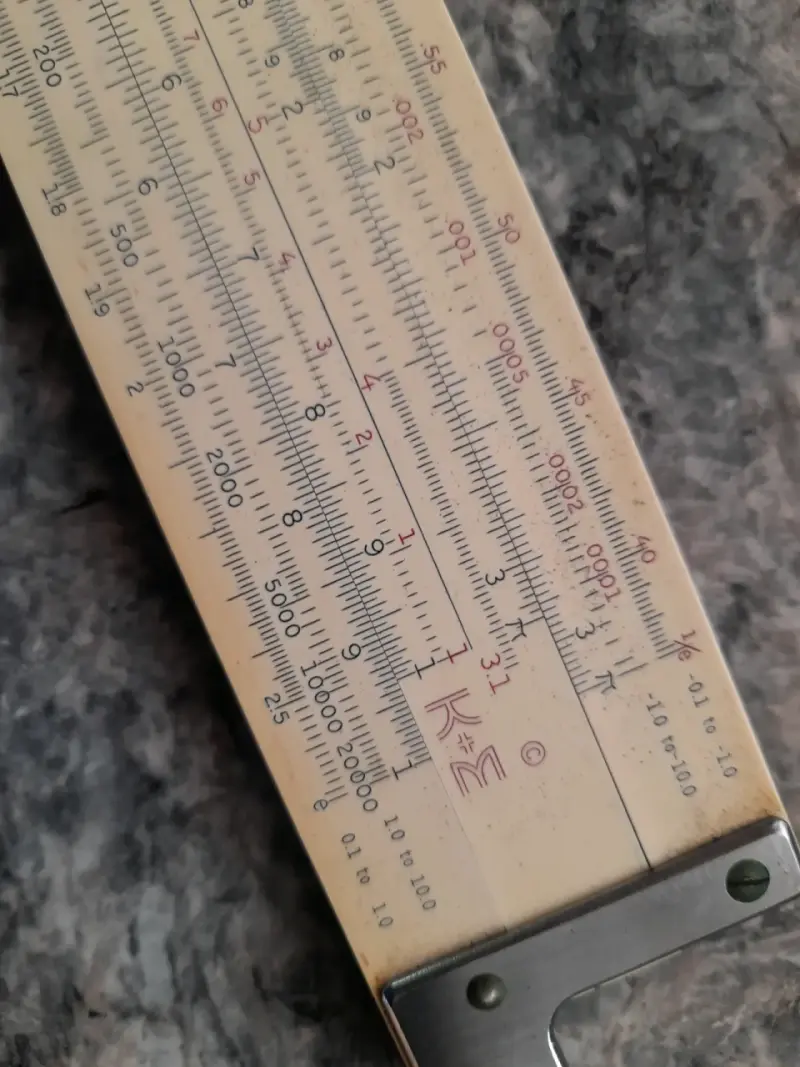 .55 .50 .45 .40 1/e -0.1 to -1.0
.002 .001 .0005 .0002 .0001 -1.0 to -10.0
8 9 2 3 π
8 9 2 3 π
©
5 4 3.1
7 6 5 4 3 2 1 1
K+E
6 7 8 9 1
6 7 8 9 1
200 500 1000 2000 5000 10000 20000 1.0 to 10.0
1.8 1.9 2 2.5 e 0.1 to 1.0